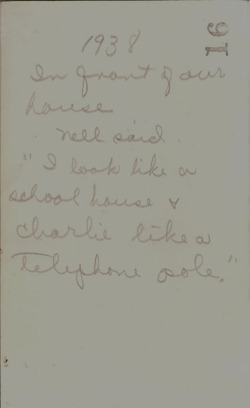 1938
16
In front of our
house
Nell said.
"I look like a
school house &
Charlie like a
Telephone pole."